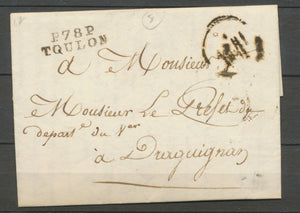 P78P
TOULON
à Monsieur
Monsieur Le Prefet du
depart.t du Var
à Draguignan